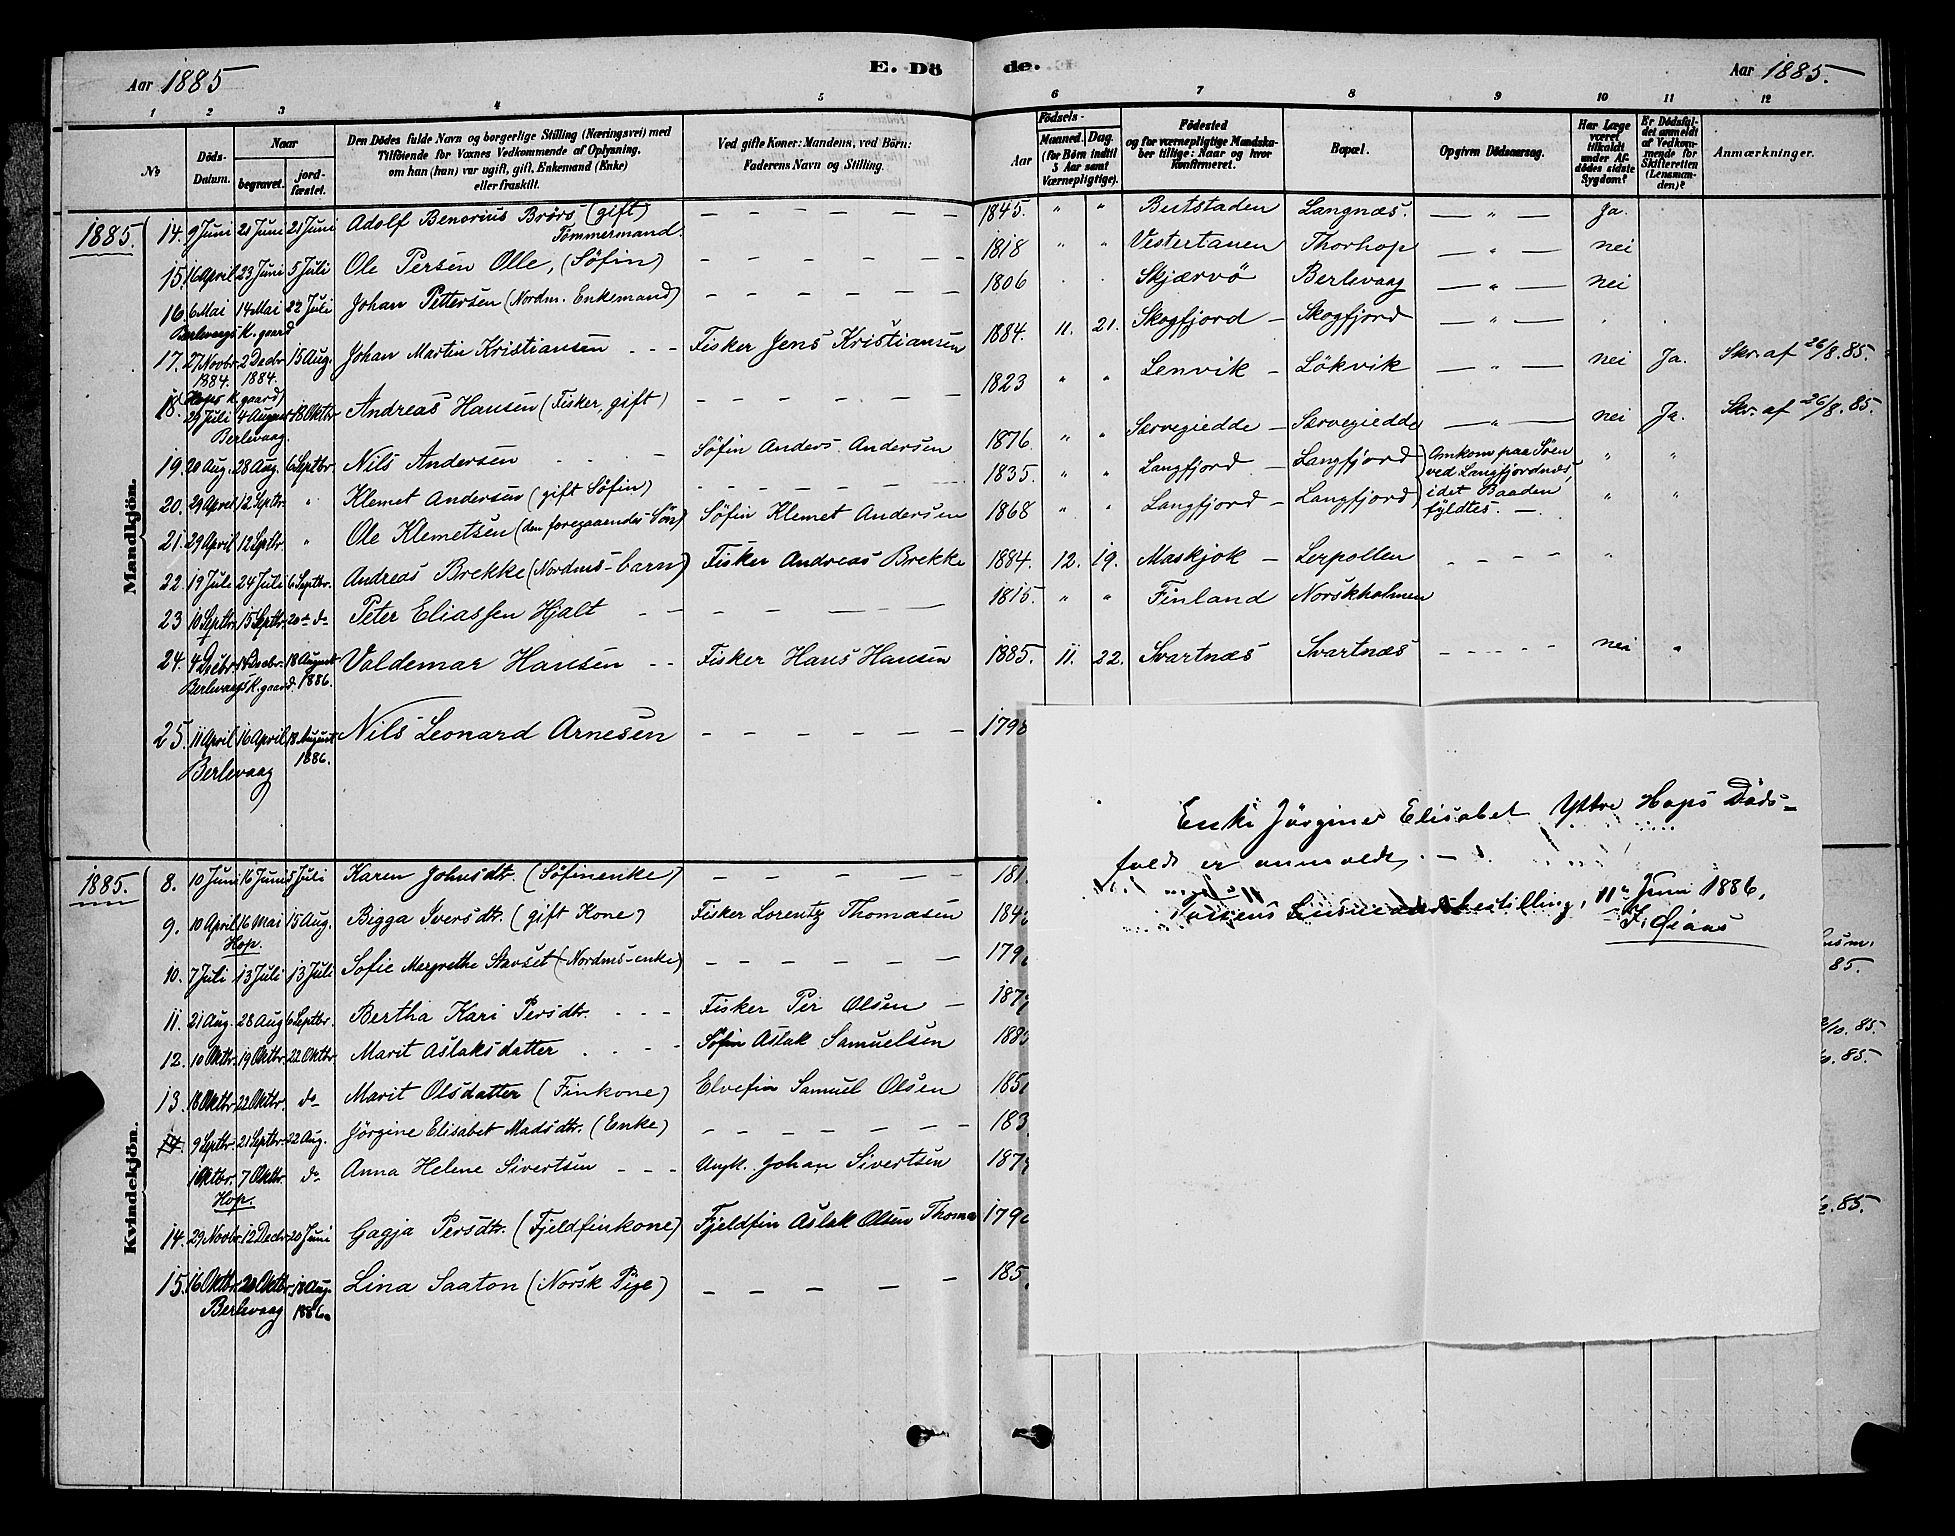 Aar 1885
E. Dö
de.
Aar 1885.
1 2 3 4 5 6 7 8 9 10 11 12
№
Döds-Datum.
Naar
begravet.
jordfæstet.
Den Dödes fulde Navn og borgerlige Stilling (Næringsvei) med
Tilföiende for Voxnes Vedkommende af Oplysning,
om han (hun) var ugift, gift, Enkemand (Enke)
eller fraskilt.
Ved gifte Koner: Mandens, ved Börn:
Faderens Navn og Stilling.
Födsels-
Aar
Maaned. Dag.
(for Börn indtil
5 Aar samt
Værnepligtige).
Födested
og for værnepligtige Mandska-
ber tillige: Naar og hvor
Konfirmeret.
Bopæl.
Opgiven Dödsaarsag.
Har Læge
været
tilkaldt
under Af-
dödes sidste
Sygdom?
Er Dödsfal-
det anmeldt
af Vedkom-
mende for
Skifteretten
(Lensman-
den)?
Anmærkninger.
Mandkjön.
1885. 14. 9 Juni 21 Juni 21 Juni Adolf Benorius Brörs (gift) — — — — — — 1845. " " Butstaden Langnæs. — " — Ja.
Tömmermand.
15. 16 April 23 Juni 5 Juli Ole Persen Olle, (Söfin) — — — — — — 1818 " " Vestertanen Thorhop — " — nei
16. 6 Mai 14 Mai 22 Juli Johan Pettersen (Nordm. Enkemand) — — — — — — 1806 Skjærvö Berlevaag — " — nei
Berlevaags K. gaard
17. 27 Novbr 2 Decbr 15 Aug. Johan Martin Kristiansen - - - Fisker Jens Kristiansen 1884. 11. 21. Skogfjord — Skogfjord — " —
1884. 1884.
(Hops K. gaard)
18. 29 Juli 4 August 18 Oktbr Andreas Hansen (Fisker, gift) — — — — — — 1823 " " Lenvik — Lökvik — " — nei Ja. Skr. af 26/8. 85.
Berlevaag.
19. 20 Aug. 28 Aug. 6 Septbr Nils Andersen Söfin Anders Andersen 1876. " " Særvegiedde — Særvegiedde — " — nei Ja. Skr. af 26/8. 85.
20. 29 April 12 Septbr " Klemet Andersen (gift Söfin) — — — — — — 1835. " " Langfjord — Langfjord Omkom paa Söen
ved Langfjordnæs, " "
21. 29 April 12 Septbr " Ole Klemetsen (den foregaaendes Sön) Söfin Klemet Andersen 1868 " " Langfjord — Langfjord idet Baaden
fyldtes. — " "
22. 19 Juli 24 Juli 6 Septbr. Andreas Brekke (Nordms-barn) Fisker Andreas Brekke 1884. 12. 19. Maskjok — Lerpollen - - - - "
23 10 Septbr. 15 Septbr. 20de do Peter Eliassen Hjalt — — — — — — 1815. " " Finland Norskholmen
24. 4 Decbr. 14 Decbr. 18 August Valdemar Hansen - - Fisker Hans Hansen 1885. 11. 22. Svartnæs Svartnæs - - - - - nei "
Berlevaags K. gaard. 1886.
25. 11 April 16 April 18 August Nils Leonard Arnesen — — — — — — 1798
Berlevaag 1886.
Kvindekjön.
1885. 8. 10 Juni 16 Juni 5 Juli Karen Johnsdtr. (Söfinenke) 181
9. 10 April 16 Mai 15 Aug. Bigga Iversdtr. (gift Kone) Fisker Lorentz Thomasen 184
Hop.
10. 7 Juli 13 Juli 13 Juli Sofie Margrethe Stavset (Nordms-enke) — — — — — — 179
11. 21 Aug. 28 Aug 6 Septbr. Bertha Kari Persdtr. - - - Fisker Per Olsen — 187
12. 10 Oktbr. 19 Oktbr. 22 Oktbr. Marit Aslaksdatter - - - Söfin Aslak Samuelsen 188
13. 18 Oktbr. 22 Oktbr. do Marit Olsdatter (Finkone) Elvefin Samuel Olsen 185
14. 9 Septbr. 21 Septbr. 22 Aug. Jörgine Elisabet Madsdtr. (Enke) — — — — — — 183
1 Oktbr. 7 Oktbr. do Anna Helene Sivertsen - - - Ungk. Johan Sivertsen 187
Hop.
14. 29 Novbr. 12 Decbr 20 Juni Gagja Persdtr. (Fjeldfinkone) Fjeldfin Aslak Olsen Thoma 179
15. 16 Oktbr. 20 Oktbr. 18 Aug. Lina Saaton (Norsk Pige) — — — — — 185
Berlevaag 1886.
Enke Jörgine Elisabet Yttre Hops Döds-
fald er anmeldt. —
Tanens Lensmandsbestilling, 11" Juni 1886,
usm.
85.
/10. 85.
85.
85.